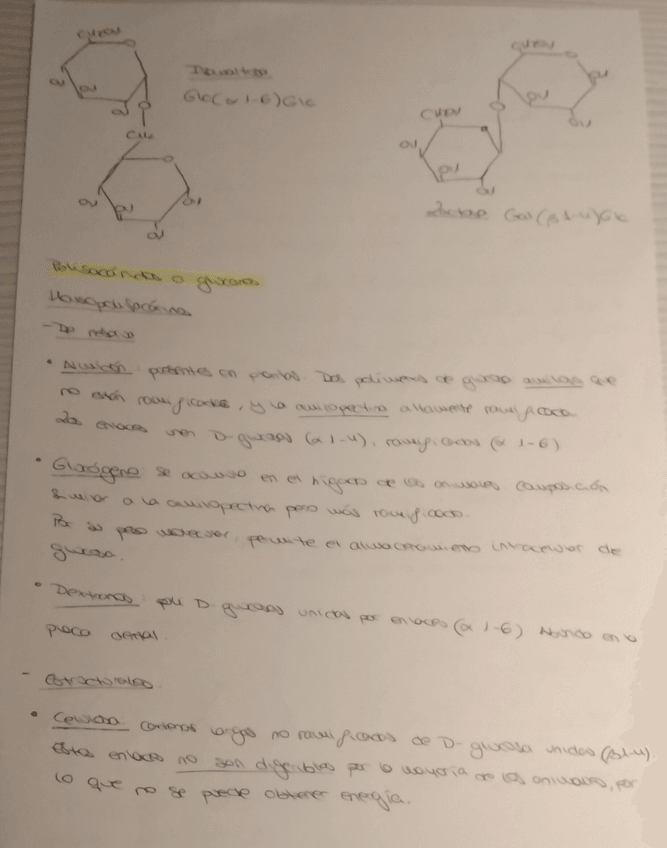 CH2OH
O
OH
OH
OH
O
CH2
O
OH
OH
OH
OH
Isomaltosa
Glc(α 1-6)Glc
CH2OH
OH
OH
OH
O
CH2OH
OH
OH
OH
Lactosa Gal(β 1-4)Glc
Polisacáridos o glucanos
Homopolisacáridos
- De reserva
• Almidón: presentes en plantas. Dos polímeros de glucosa amilosa que
no están ramificados, y la amilopectina altamente ramificada.
Los enlaces unen D-glucosas (α 1-4), ramificados (α 1-6)
• Glucógeno: se acumula en el hígado de los animales composición
similar a la amilopectina pero más ramificado.
Por su peso molecular, permite el almacenamiento intracelular de
glucosa.
• Dextranos: poli D-glucosas unidas por enlaces (α 1-6) Abunda en la
placa dental.
- Estructurales
• Celulosa cadenas largas no ramificadas de D-glucosa unidas (β 1-4).
Estos enlaces no son digeribles por la mayoría de los animales, por
lo que no se puede obtener energía.